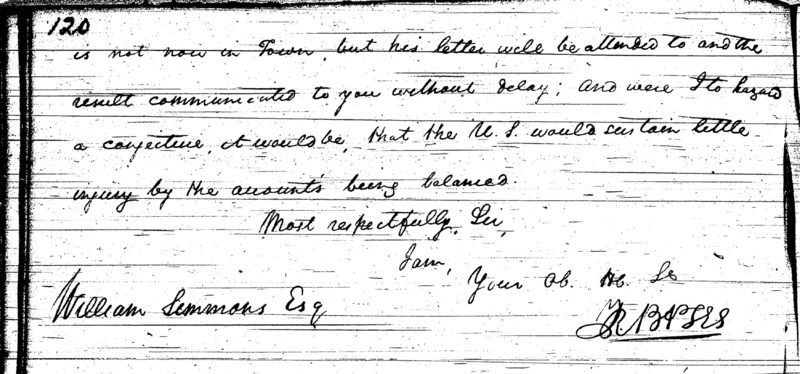 120
is not now in Town, but his letter will be attended to and the
result communicated to you without delay; and were I to hazard
a conjecture, it would be, that the U. S. would sustain little
injury by the accounts being balanced.
Most respectfully, Sir,
I am,
Your Ob. Hb. Se
William Simmons Esq